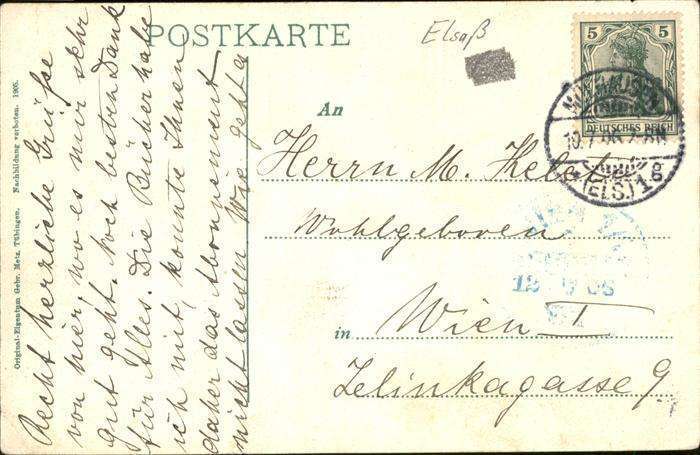 POSTKARTE
Elsaß
5 5
DEUTSCHES REICH
MÜLHAUSEN
(ELS.) 1
An
Herrn M. Keler
Wohlgeboren
in Wien I
Zelinkagasse 9
12 08
Recht herzliche Grüße
von hier, wo es mir sehr
gut geht. Noch besten Dank
für Alles. Die Bücher habe
ich mit, konnte Ihnen
daher das Abonnement
nicht lassen. Wie geht es
Original-Eigentum Gebr. Metz, Tübingen. Nachbildung verboten. 1905.